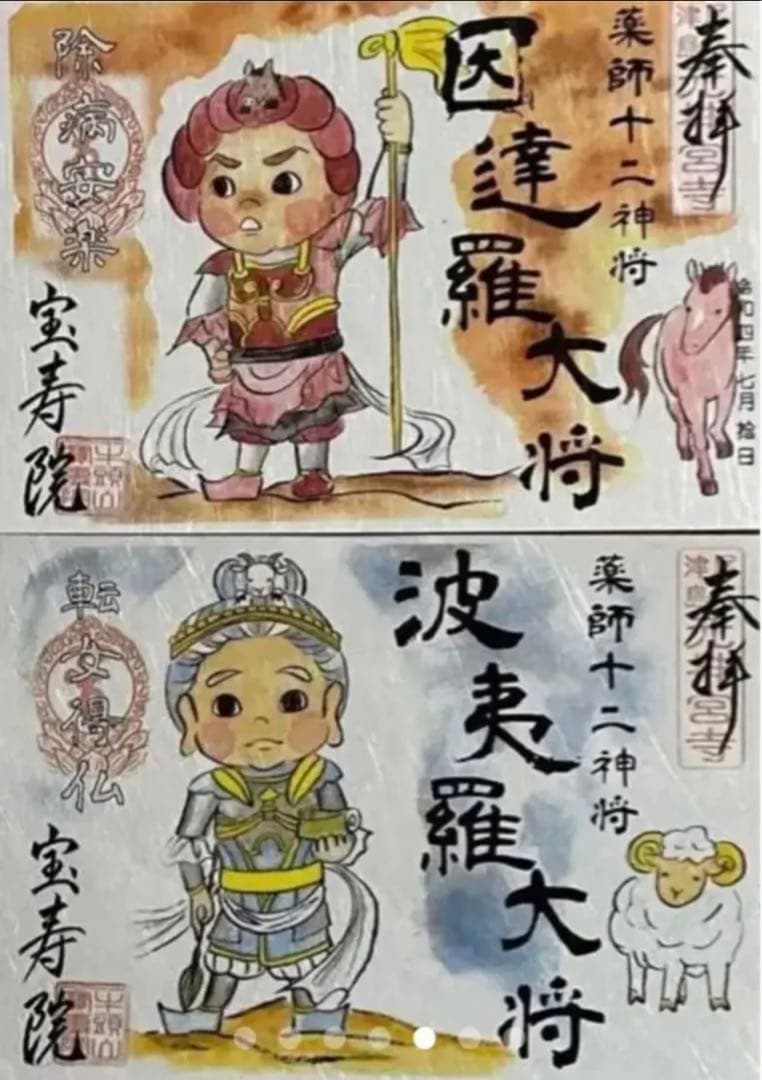 奉拝
薬師十二神将
因達羅大将
令和四年七月拾日
除病安楽
宝寿院
奉拝
薬師十二神将
波夷羅大将
転女得仏
宝寿院